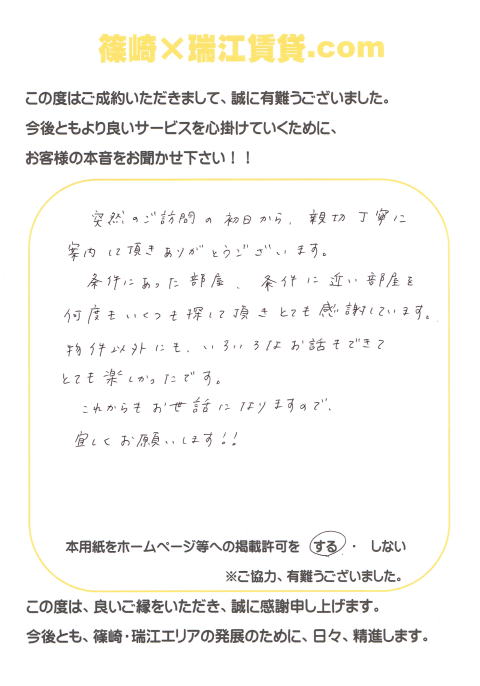 篠崎×瑞江賃貸.com
この度はご成約いただきまして、誠に有難うございました。
今後ともより良いサービスを心掛けていくために、
お客様の本音をお聞かせ下さい！！
突然のご訪問の初日から、親切丁寧に
案内して頂きありがとうございます。
条件にあった部屋、条件に近い部屋を
何度もいくつも探して頂きとても感謝しています。
物件以外にも、いろいろなお話もできて
とても楽しかったです。
これからもお世話になりますので、
宜しくお願いします!!
本用紙をホームページ等への掲載許可を する ・ しない
※ご協力、有難うございました。
この度は、良いご縁をいただき、誠に感謝申し上げます。
今後とも、篠崎・瑞江エリアの発展のために、日々、精進します。